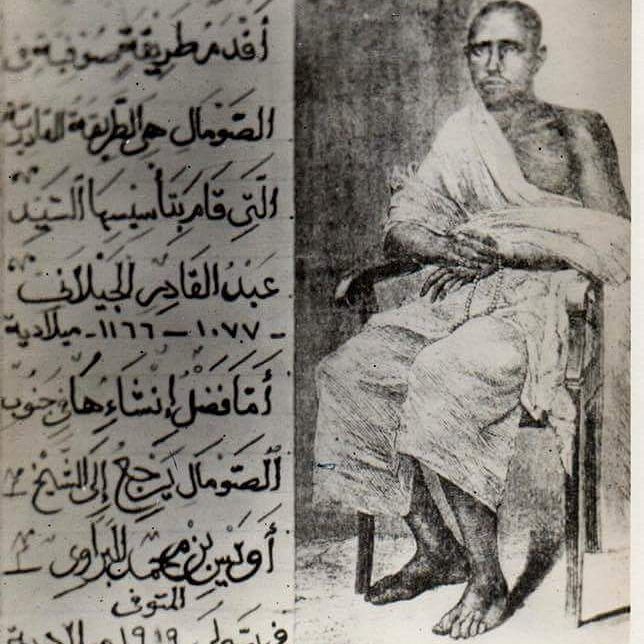 أقدم طريقة صوفية في
الصّومال هي الطريقة القادرية
الّتي قام بتأسيسها السّيّد
عبد القادر الجيلاني
ـ ١٠٧٧ — ١١٦٦ ـ ميلادية
أمّا فضل إنشاءها في جنوب
الصّومال يرجع إلى الشّيخ
أويس بن محمد البراوي
المتوفى
في ١٩١٩ ميلادية